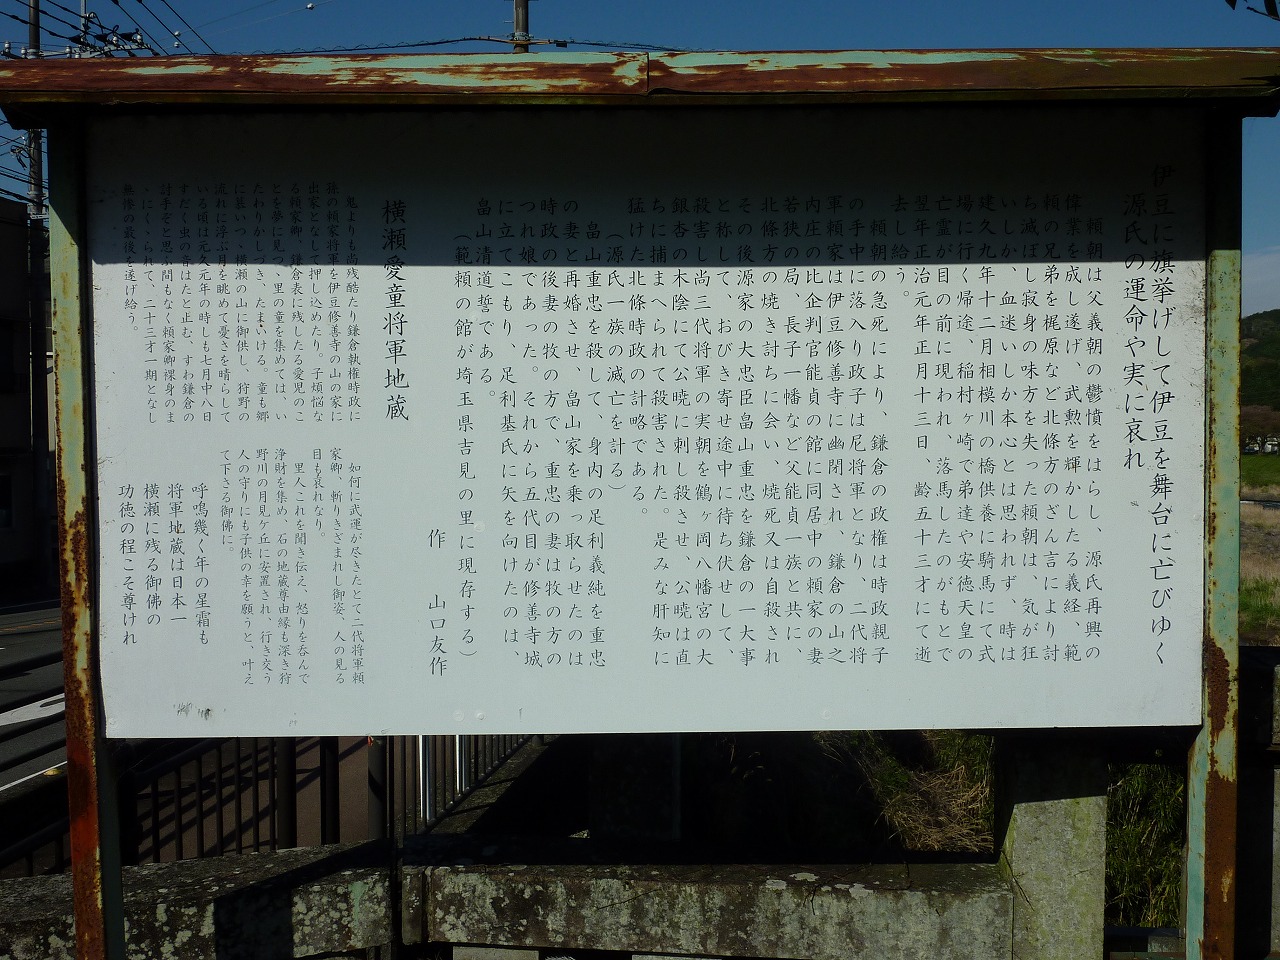 伊豆に旗挙げして伊豆を舞台に亡びゆく
源氏の運命や実に哀れ
頼朝は父義朝の鬱憤をはらし、源氏再興の
偉業を成し遂げ、武勲を輝かしたる義経、範
頼の兄弟を梶原など北條方のざん言により討
ち滅ぼし寂身の味方を失った頼朝は、気が狂
いしか、血迷いしか本心とは思われず、時は
建久九年十二月相模川の橋供養に騎馬にて式
場に行く帰途、稲村ヶ崎で弟達や安徳天皇の
亡霊が目の前に現われ、落馬したのがもとで
翌年正治元年正月十三日、齢五十三才にて逝
去し給う。
頼朝の急死により 鎌倉の政権は時政親子
の手中に落入り政子は尼将軍となり 二代将
軍頼家は伊豆修善寺に幽閉され、鎌倉の山之
内庄の比企判官能貞の館に同居中の頼家の妻
若狭の局、長子一幡など父能貞一族と共に、
北條方の焼き討ちに会い、焼死又は自殺され
その後源家の大忠臣畠山重忠を鎌倉の一大事
と称して、おびき寄せ途中に待ち伏せして、
殺害し尚三代将軍の実朝を鶴ヶ岡八幡宮の大
銀杏の木陰にて公暁に刺し殺させ、公暁は直
ちに捕まへられて殺害された。是みな肝知に
猛けた北條時政の計略である。
(源氏一族の滅亡を計る)
畠山重忠を殺して、身内の足利義純を重忠
の妻と再婚させ、畠山家を乗っ取らせたのは
時政の後妻の牧の方で、重忠の妻は牧の方の
つれ娘であった。それから五代目が修善寺城
に立てこもり、足利基氏に矢を向けたのは、
畠山清道誓である。
(範頼の館が埼玉県吉見の里に現存する)
作 山口友作
横瀬愛童将軍地蔵
鬼よりも尚残酷たり鎌倉執権時政に
孫の頼家将軍を伊豆修善寺の山の家に
出家となして押し込めたり。子煩悩な
る頼家卿、鎌倉表に残したる愛児のこ
とを夢に見つゝ里の童を集めては、い
たわりかしづき、たまいける。童も郷
に慕いつゝ横瀬の山に御供し、狩野の
流れに浮ぶ月を眺めて憂さを晴らして
いる頃は元久元年の時しも七月中八日
すだく虫の音はたと止む、すわ鎌倉の
討手ぞと思ふ間もなく頼家卿裸身のま
ゝにくゝられて、二十三才一期となし
無惨の最後を遂げ給う。
如何に武運が尽きたとて二代将軍頼
家卿、斬りきざまれし御姿、人の見る
目も哀れなり。
里人これを聞き伝え、怒りを呑んで
浄財を集め、石の地蔵尊由縁も深き狩
野川の月見ケ丘に安置され、行き交う
人の守りにも子供の幸を願うと、叶え
て下さる御佛に。
呼鳴幾く年の星霜も
将軍地蔵は日本一
横瀬に残る御佛の
功徳の程こそ尊けれ